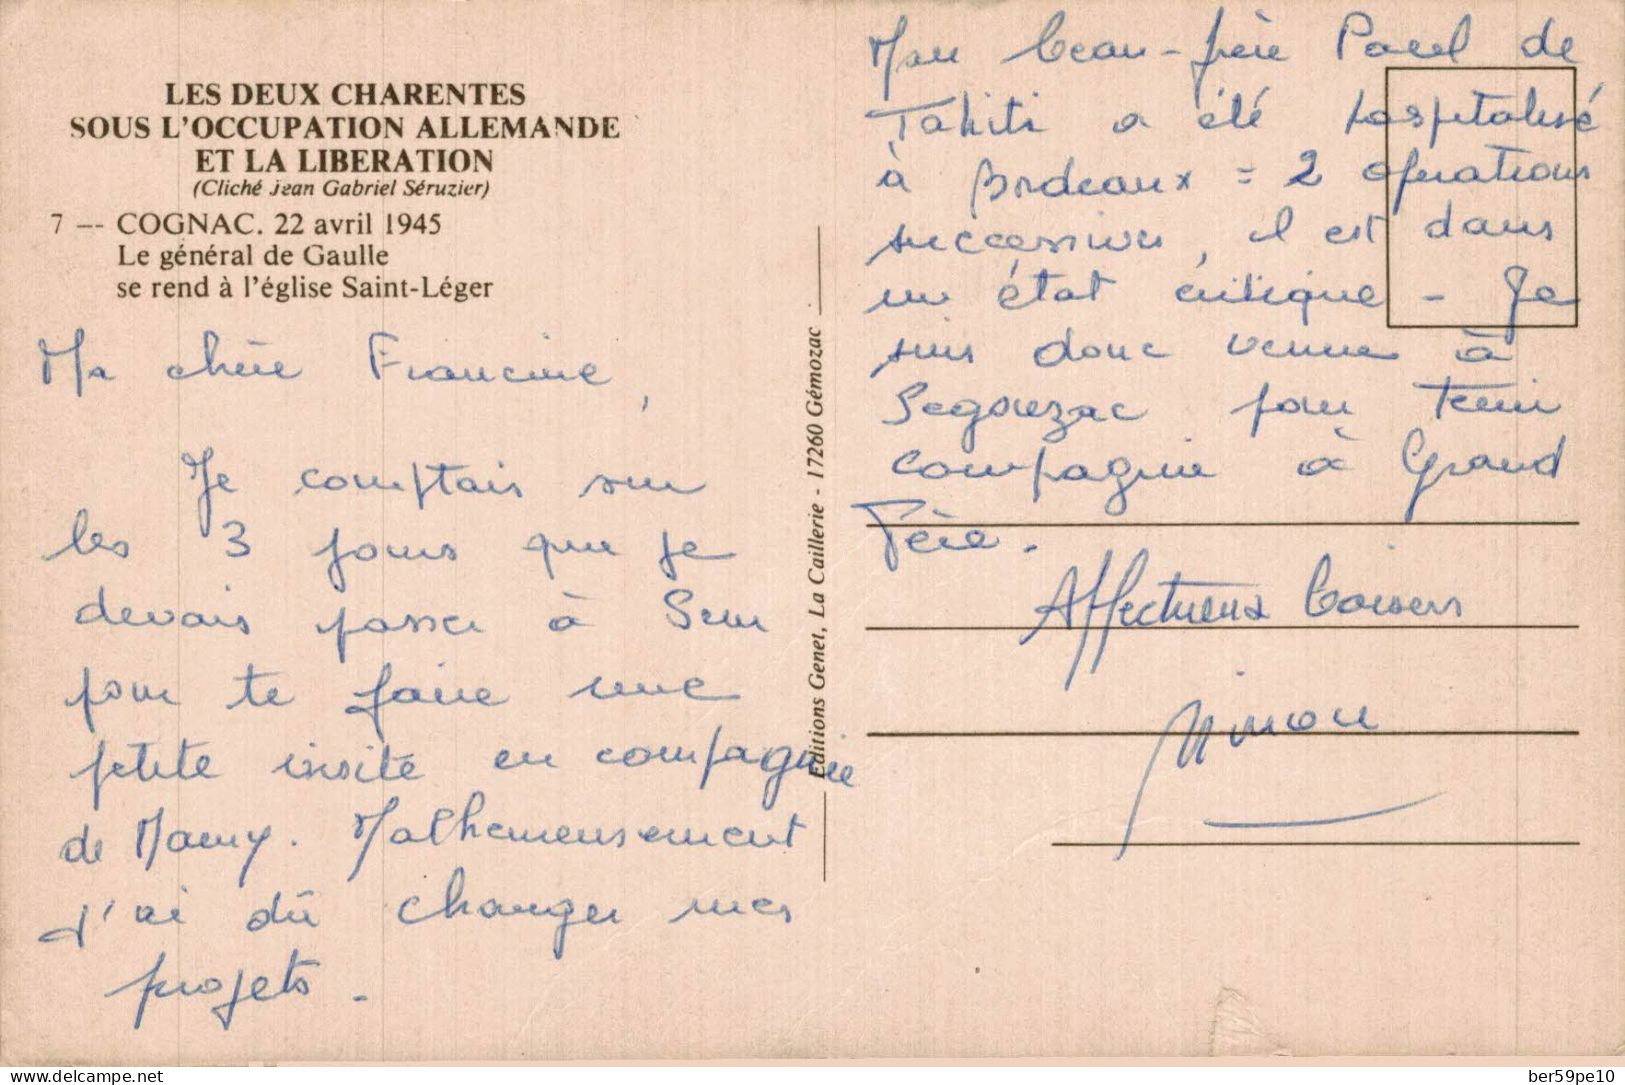 LES DEUX CHARENTES
SOUS L'OCCUPATION ALLEMANDE
ET LA LIBERATION
(Cliché Jean Gabriel Séruzier)
7 -- COGNAC. 22 avril 1945
Le général de Gaulle
se rend à l'église Saint-Léger
Ma chère Francine,
Je comptais sur
les 3 jours que je
devais passer à
pour te faire une
petite visite en compagnie
de Mamy. Malheureusement
j'ai dû changer mes
projets.
Editions Genet, La Caillerie - 17260 Gémozac
Mon beau-frère de
Tahiti a été hospitalisé
à Bordeaux = 2 opérations
successives, il est dans
un état critique - Je
suis donc venue à
Segonzac pour tenir
compagnie à Grand
Père.
Affectueux baisers
Ninou
delcampe.net
ber59pe10